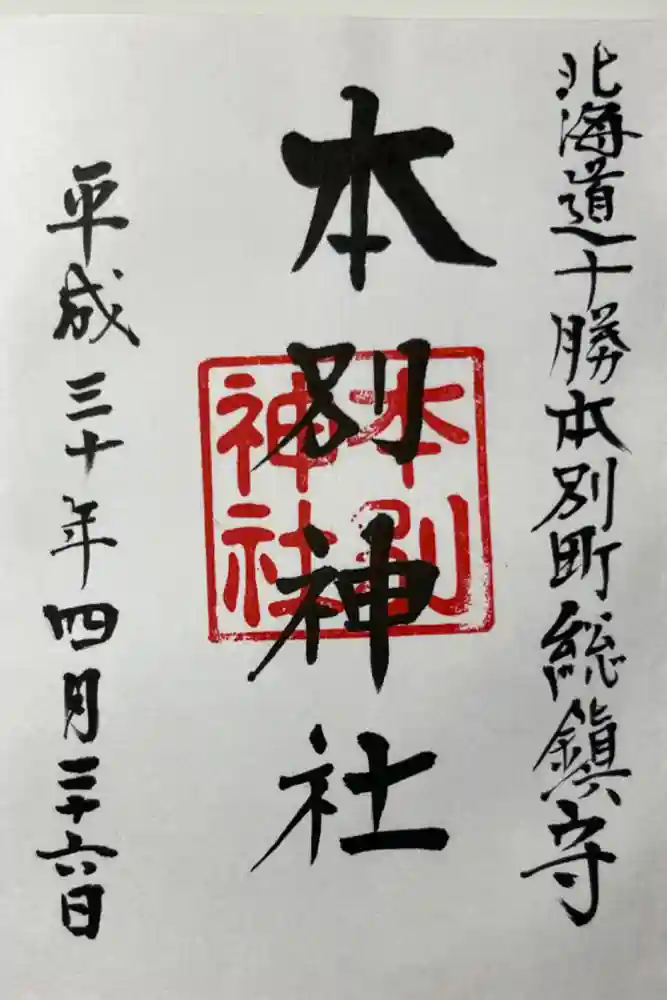 北海道十勝本別町総鎮守
本別神社
本別
神社
平成三十年四月二十六日